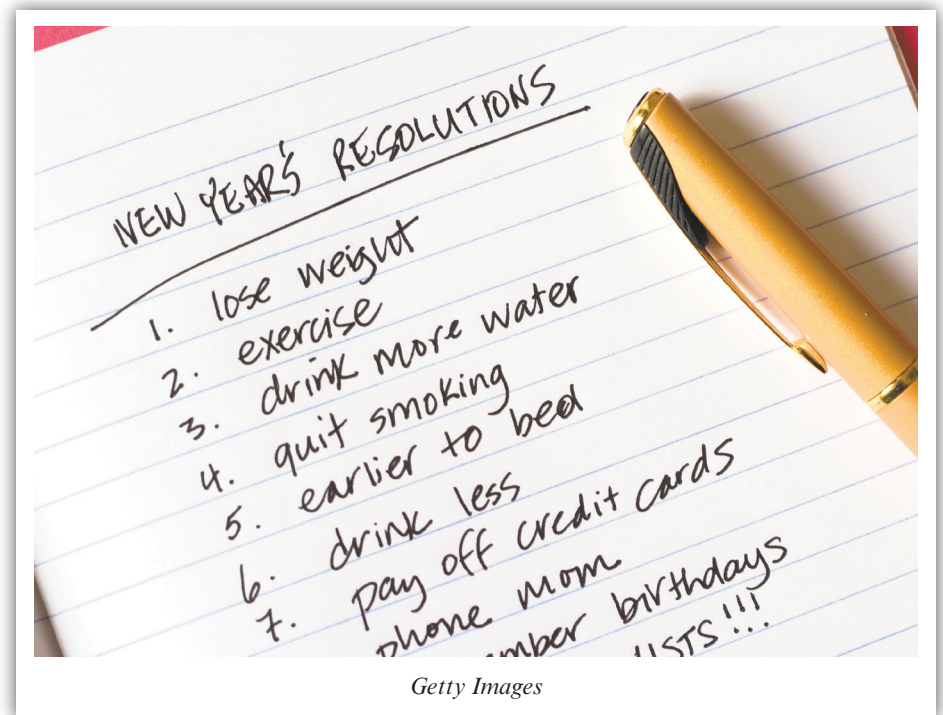 NEW YEAR'S RESOLUTIONS
1. lose weight
2. exercise
3. drink more water
4. quit smoking
5. earlier to bed
6. drink less
7. pay off credit cards
phone mom
birthdays
LISTS!!!
Getty Images